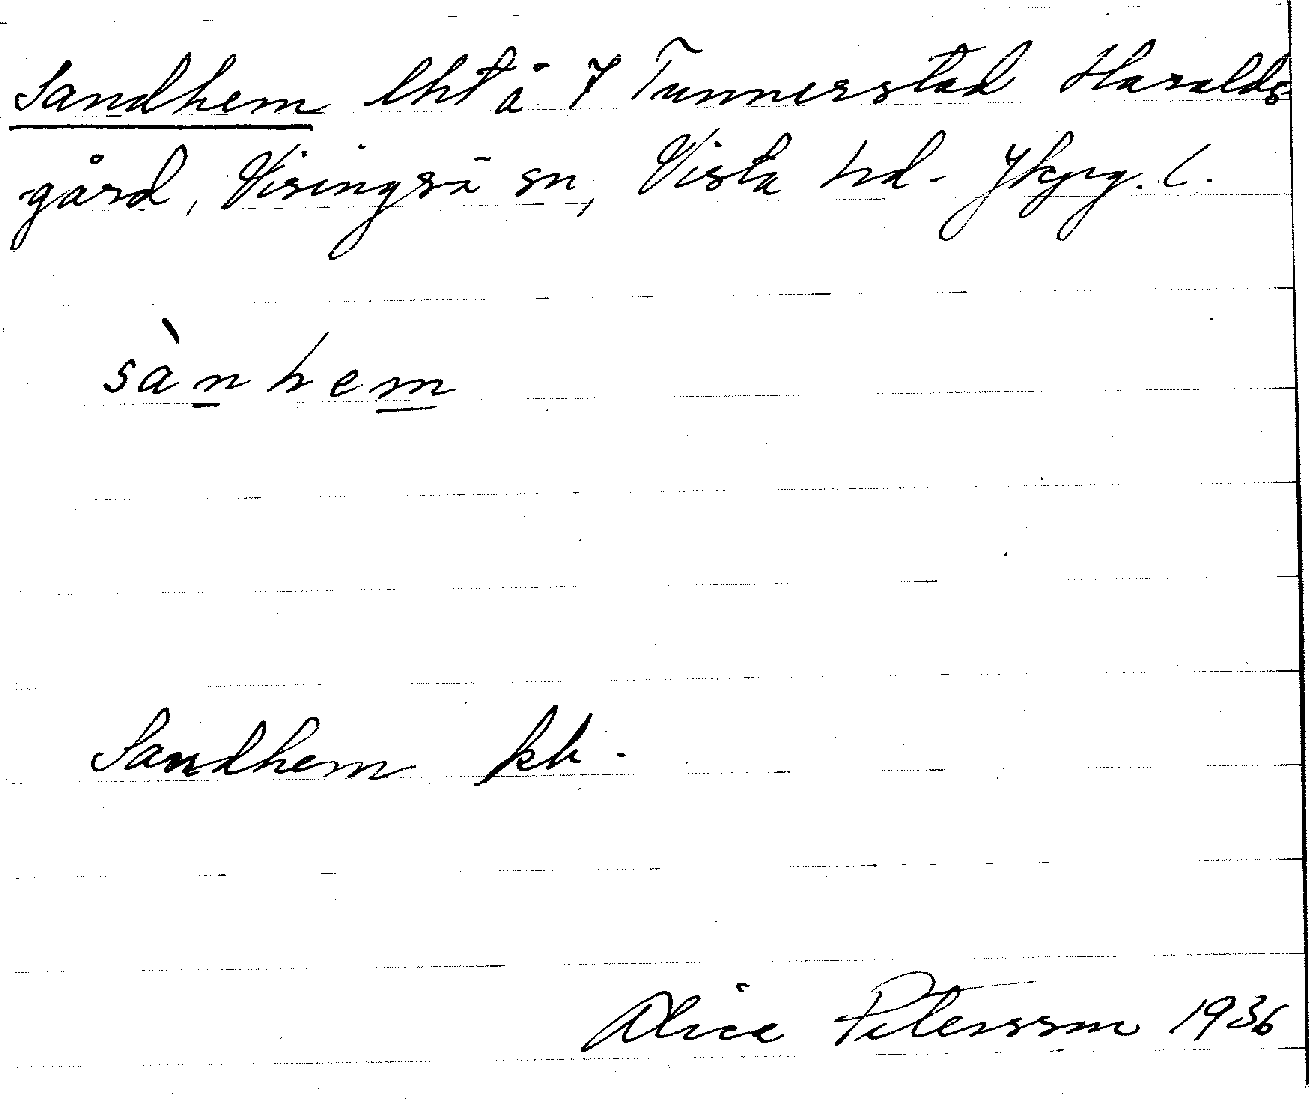 Sandhem lht å 7 Tunnerstad Haralds
gård, Visingsö sn, Vista hd. Jkpg. l.
sànhem
Sandhem kb.
Alice Petersson 1936